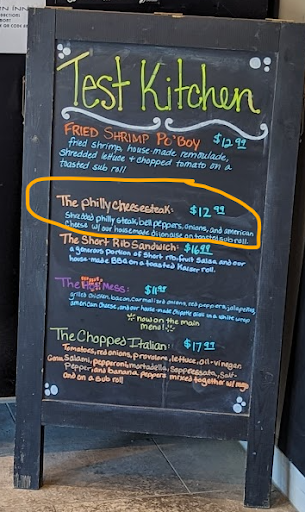 Test Kitchen
FRIED SHRIMP PO'BOY $12.99
fried shrimp, house made remoulade,
shredded lettuce + chopped tomato on a
toasted sub roll
The Philly Cheesesteak: $12.99
Shredded philly steak, bell peppers, onions, and american
cheese w/ our housemade dijonaise on toasted sub roll.
The Short Rib Sandwich: $16.99
a generous portion of short rib, fruit salsa, and our
house-made BBQ on a toasted Kaiser roll.
The Mess: $11.99
grilled chicken, bacon, red peppers, jalapeños,
american cheese, and our house-made chipotle in a white wrap
now on the main
menu!
The Chopped Italian: $17.99
Tomatoes, red onions, provolone, lettuce, oil + vinegar
Salami, pepperoni, mortadella, Soppressata, Salt
Pepper, and banana peppers mixed together w/ mayo
and on a Sub roll